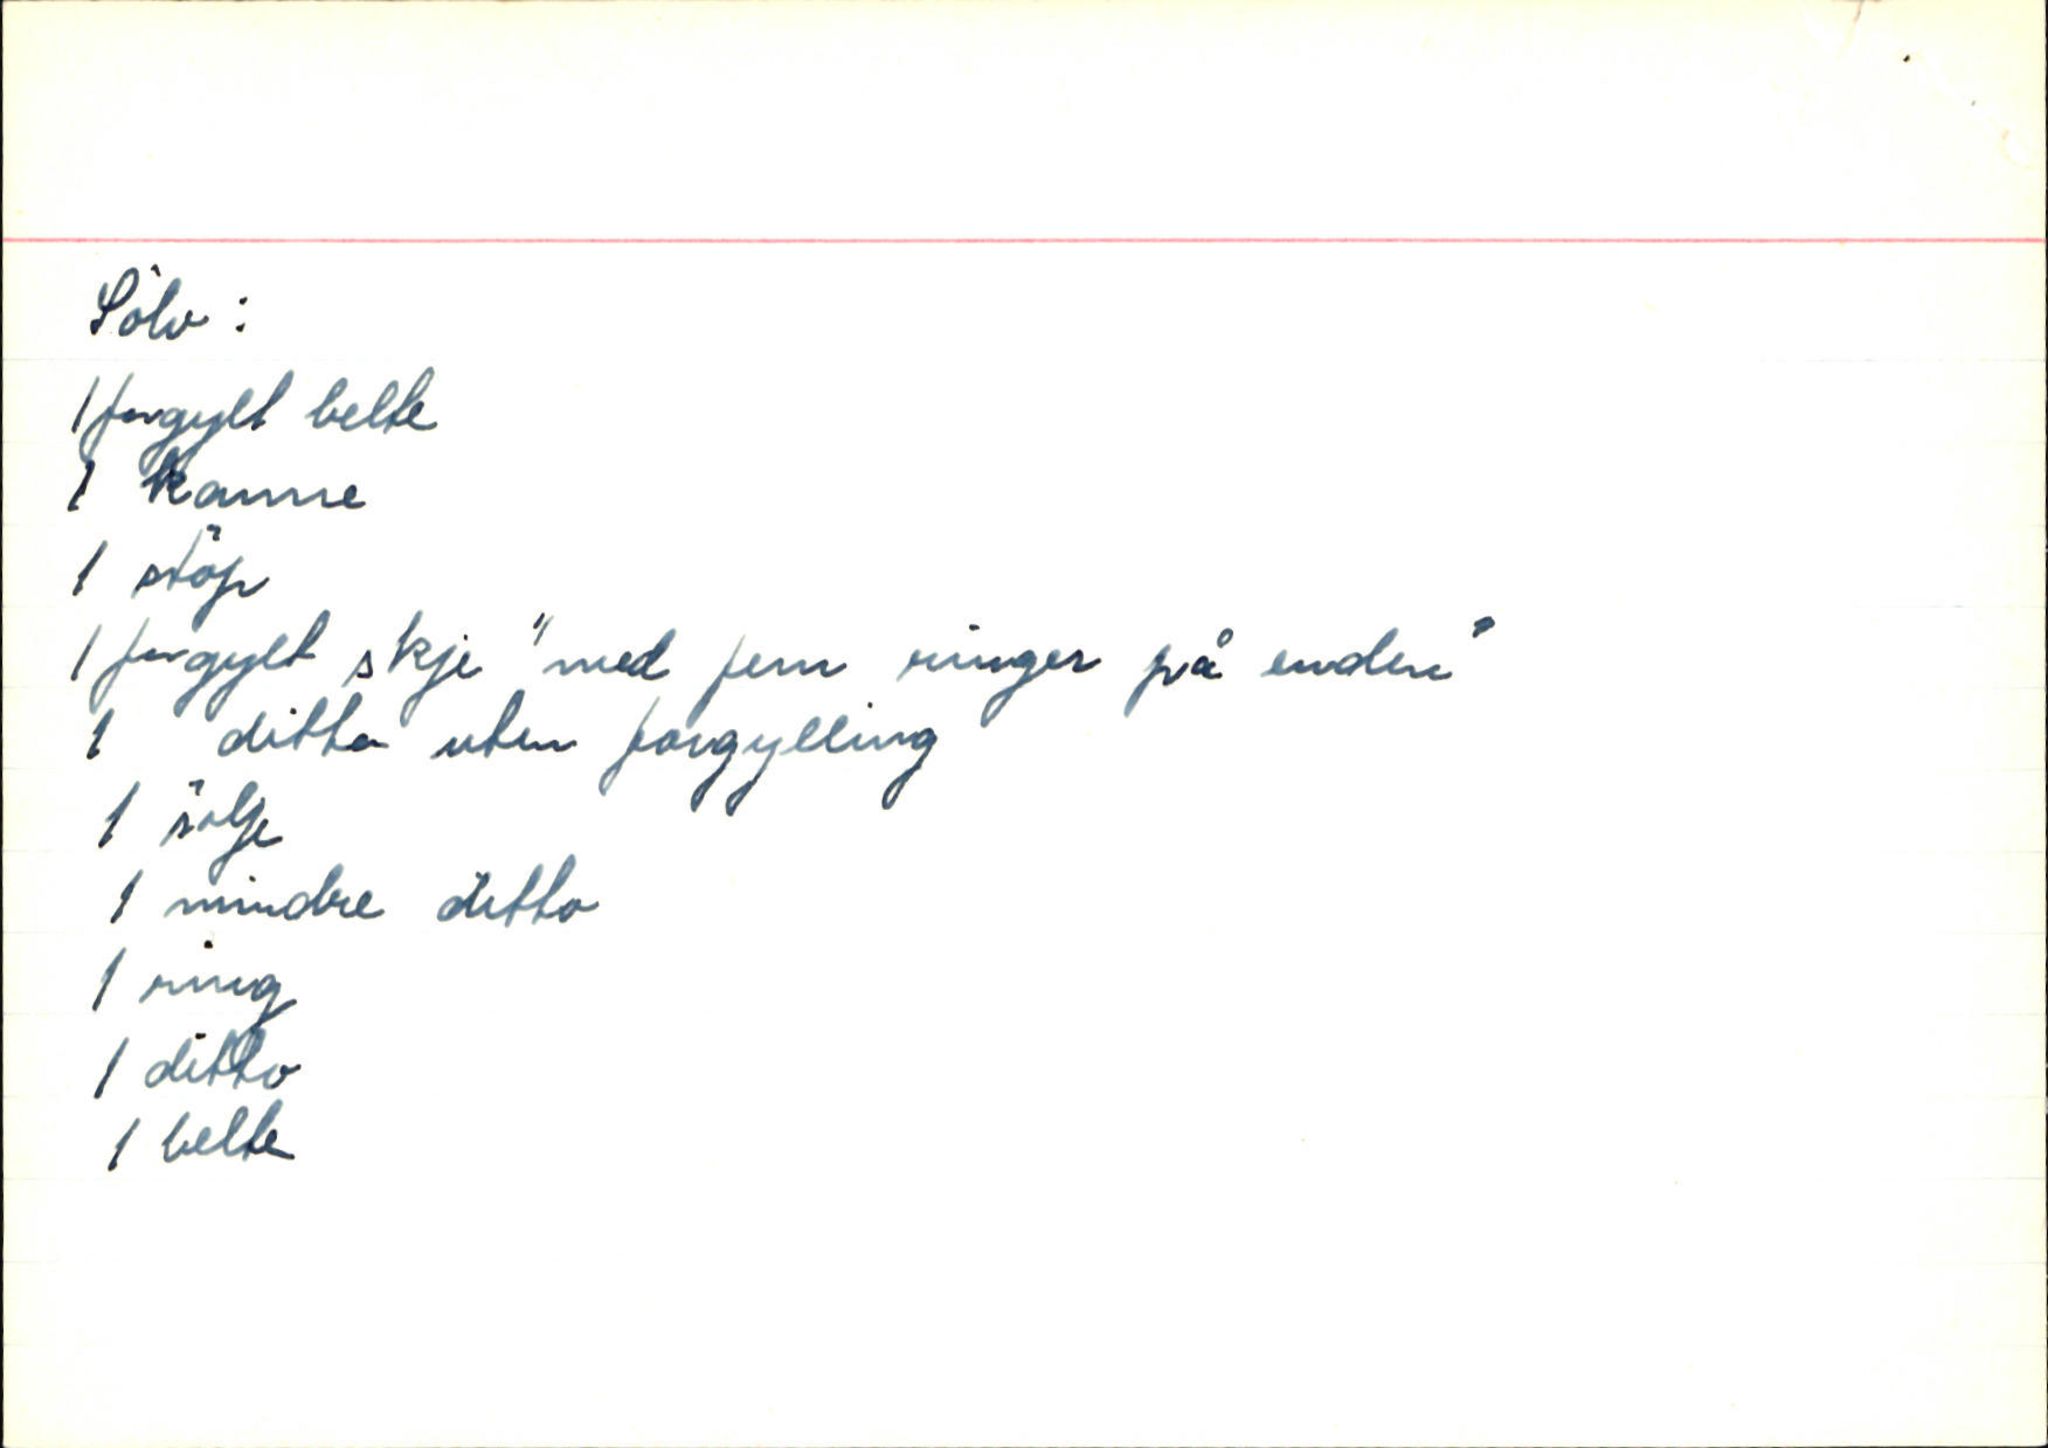 Sölv :
1 forgylt belte
1 kanne
1 stöp
1 forgylt skje "med fem ringer på enden"
1 ditto uten forgylling
1 sölje
1 mindre ditto
1 ring
1 ditto
1 belte